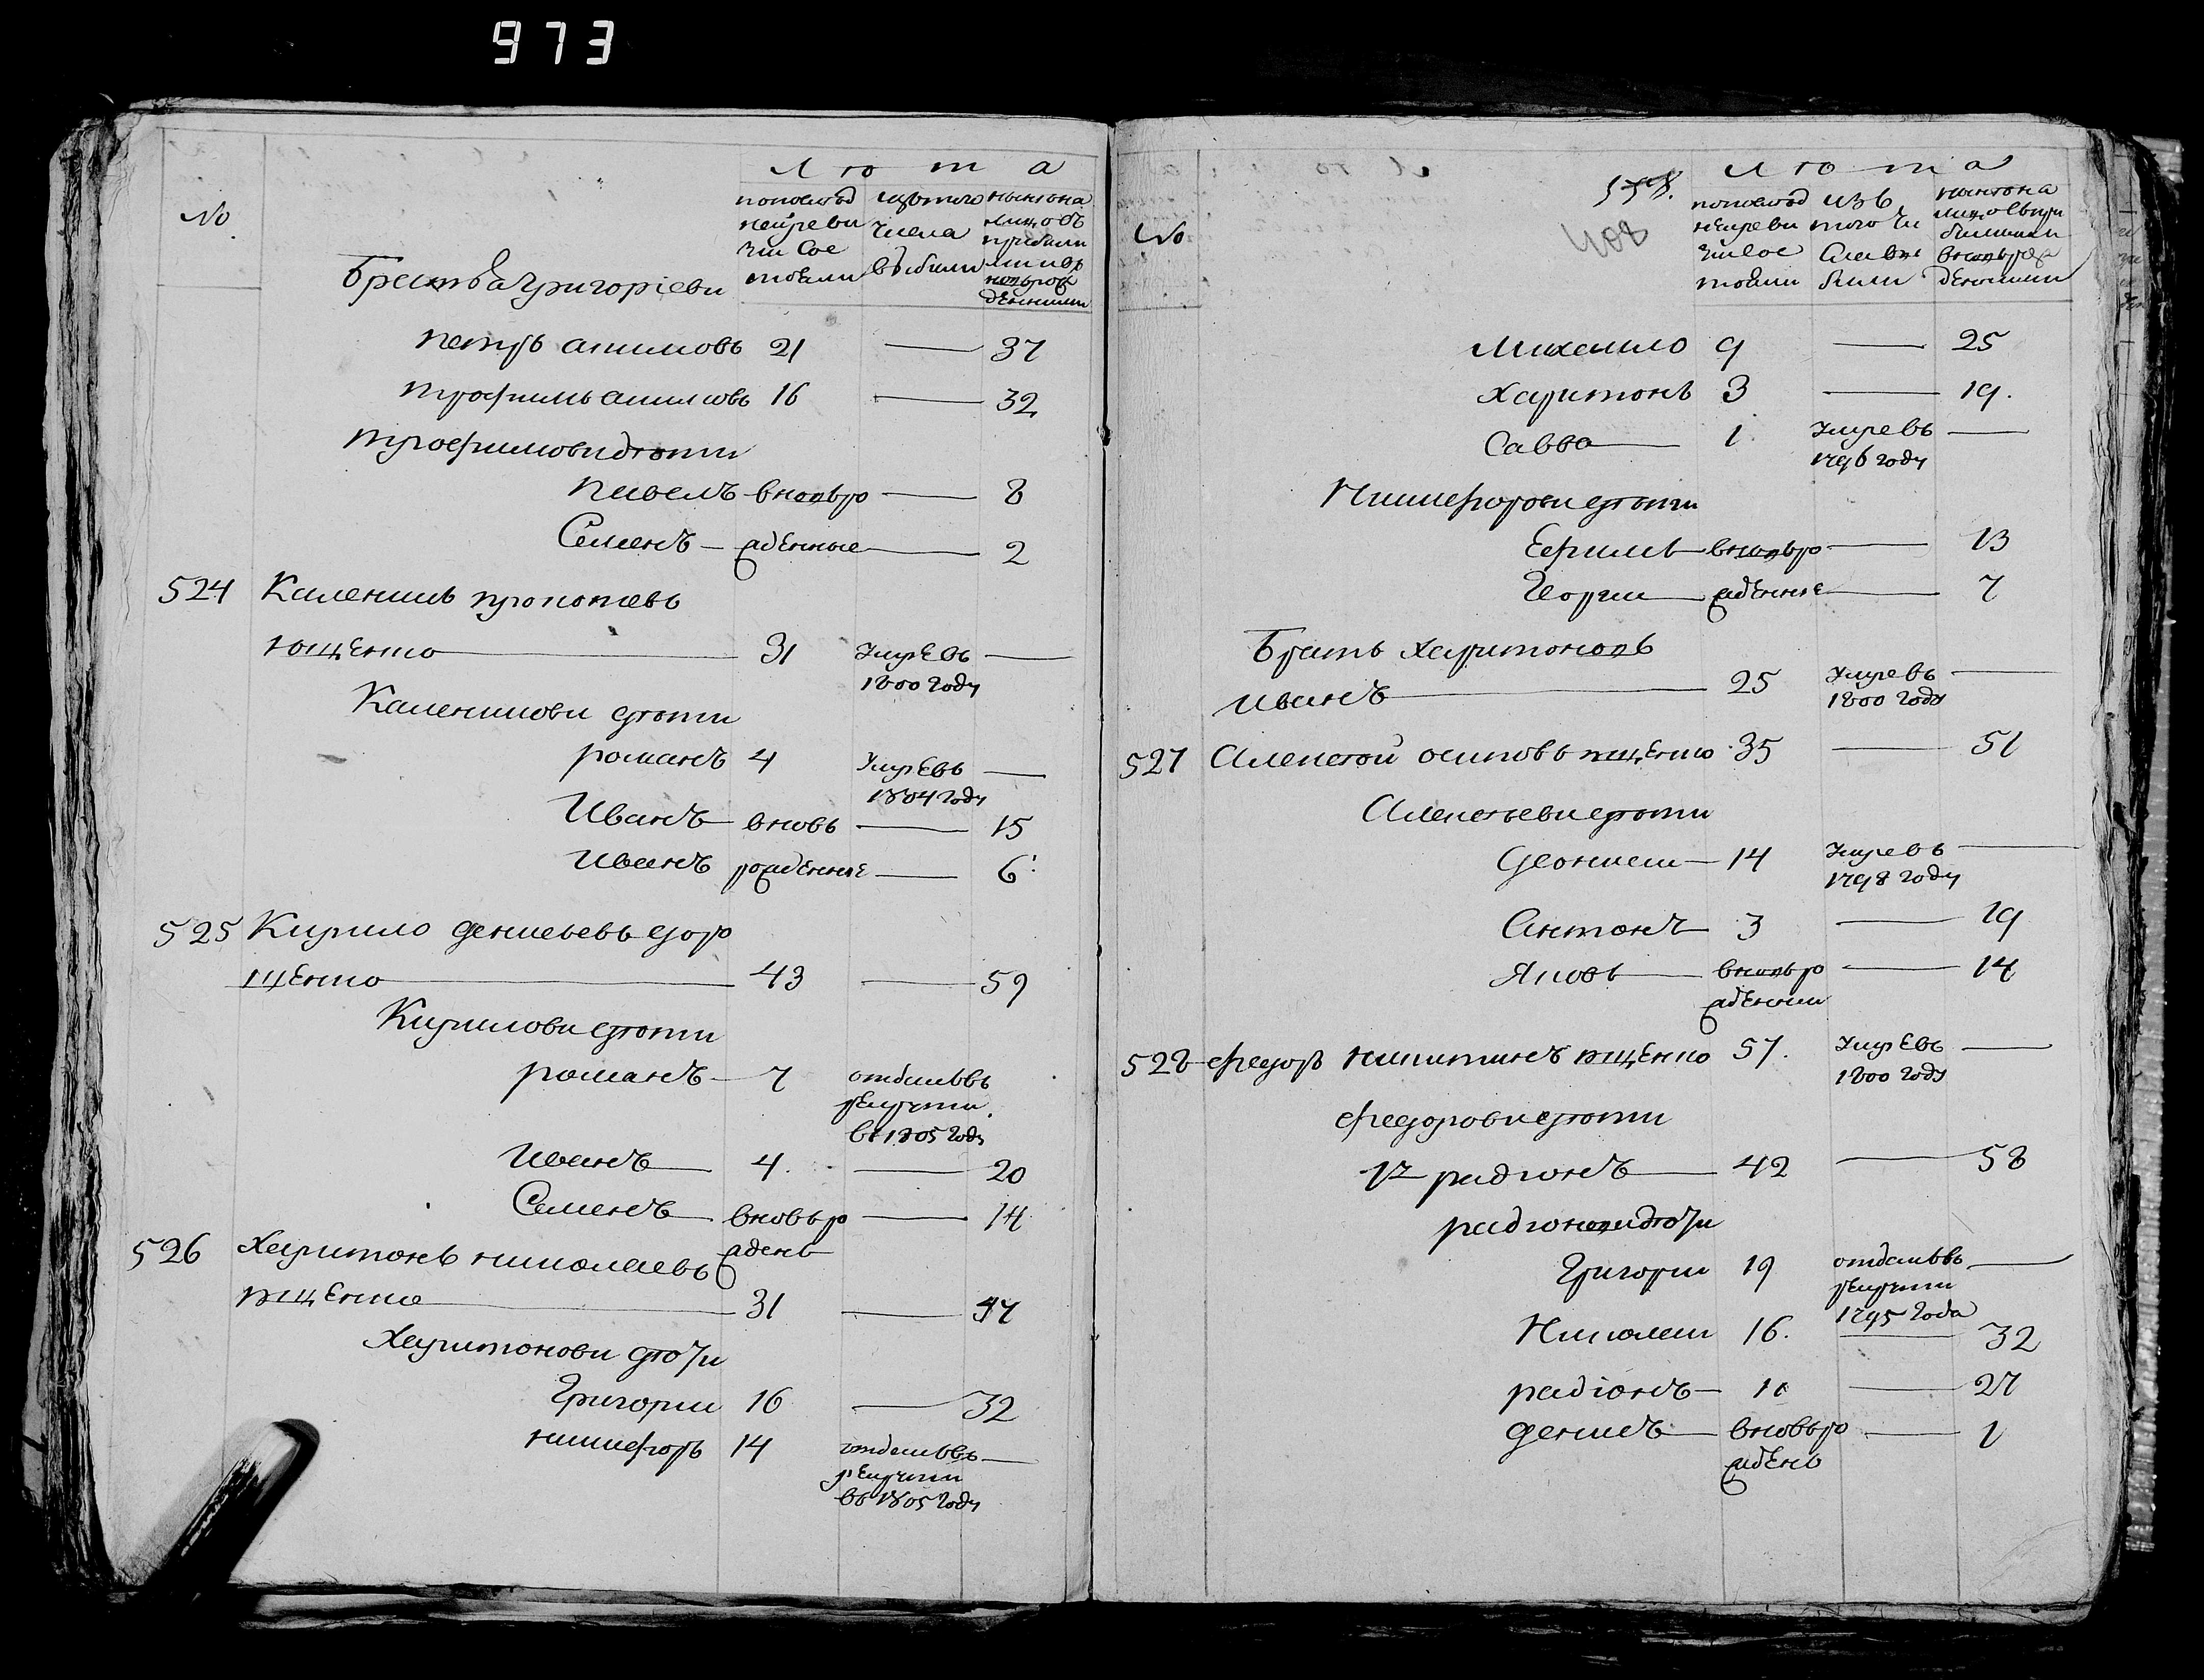 973
Лѣта
№
по последней ревизии состояли
из того числа выбыли
ныне на лицо съ прибылими и вновь рожденними
Братья Григориеви
Петръ Акимовъ 21 — 37
Трофимъ Акимовъ 16 — 32
Трофимови дѣти
Павелъ вновь ро — 8
Семенъ — жденные — 2
524 Каленикъ Прокопиевъ
ющенко — 31 умре въ —
1800 году
Калениковы дѣти
Романъ 4 умре въ —
1804 году
Иванъ вновь — 15
Иванъ рожденние — 6
525 Кирило Денисьевъ
щенко — 43 — 59
Кирилови дѣти
Романъ — 7 отданъ въ
рекрути
въ 1805 году
Иванъ 4. — 20
Семенъ вновь ро — 14
жденъ
526 Харитонъ Николаевъ
ющенко — 31 — 47
Харитонови дѣти
Григории 16 — 32
Никифоръ 14 отданъ въ —
рекрути
въ 1805 году
Лѣта
408
№
по последней ревизии состояли
изъ того числа выбыли
ныне на лицо съ прибылими и вновь рожденними
Михаило 9 — 25
Харитонъ 3 — 19.
Савва — 1 умре въ —
1796 году
Никифорови дѣти
Ефимъ — вновь ро — 13
Георгии — жденние — 7
Братъ Харитоновъ
Иванъ — 25 умре въ —
1800 году
527 Алексѣй Осиповъ ющенко 35 — 51
Алексѣеви дѣти
14 умре въ —
1798 году
Антонъ — 3 — 19
Яковъ — вновь ро — 14
жденни
528 Федоръ Никитинъ ющенко 57. умре въ —
1800 году
Федорови дѣти
1й Радионъ — 42 — 58
Радионови дѣти
Григории 19 отданъ въ —
рекрути
1795 года
Николаи 16. — 32
Радионъ — 11 — 27
Денисъ — вновь ро — 1
жденъ